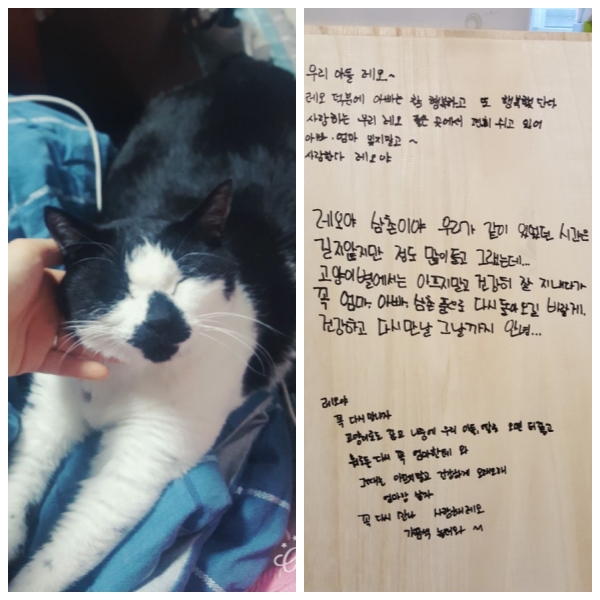 우리 아들 레오~
레오 덕분에 아빠는 참 행복하고 또 행복했단다
사랑하는 우리 레오 좋은 곳에서 편히 쉬고 있어
아빠·엄마 잊지말고~
사랑한다 레오야
레오야 삼촌이야 우리가 같이 있었던 시간은
길지않지만 정도 많이들고 그랬는데...
고양이별에서는 아프지말고 건강히 잘 지내다가
꼭 엄마, 아빠, 삼촌 품으로 다시 돌아오길 바랄게.
건강하고 다시만날 그날까지 안녕...
레오야
꼭 다시 만나자
고양이로도 좋고 나중에 우리 아들, 딸로 오면 더좋고
뭐로든 다시 꼭 엄마한테 와
그때는 아프지말고 건강하게 오래오래
엄마랑 살자
꼭 다시 만나 사랑해 레오
가끔씩 놀러와 ~